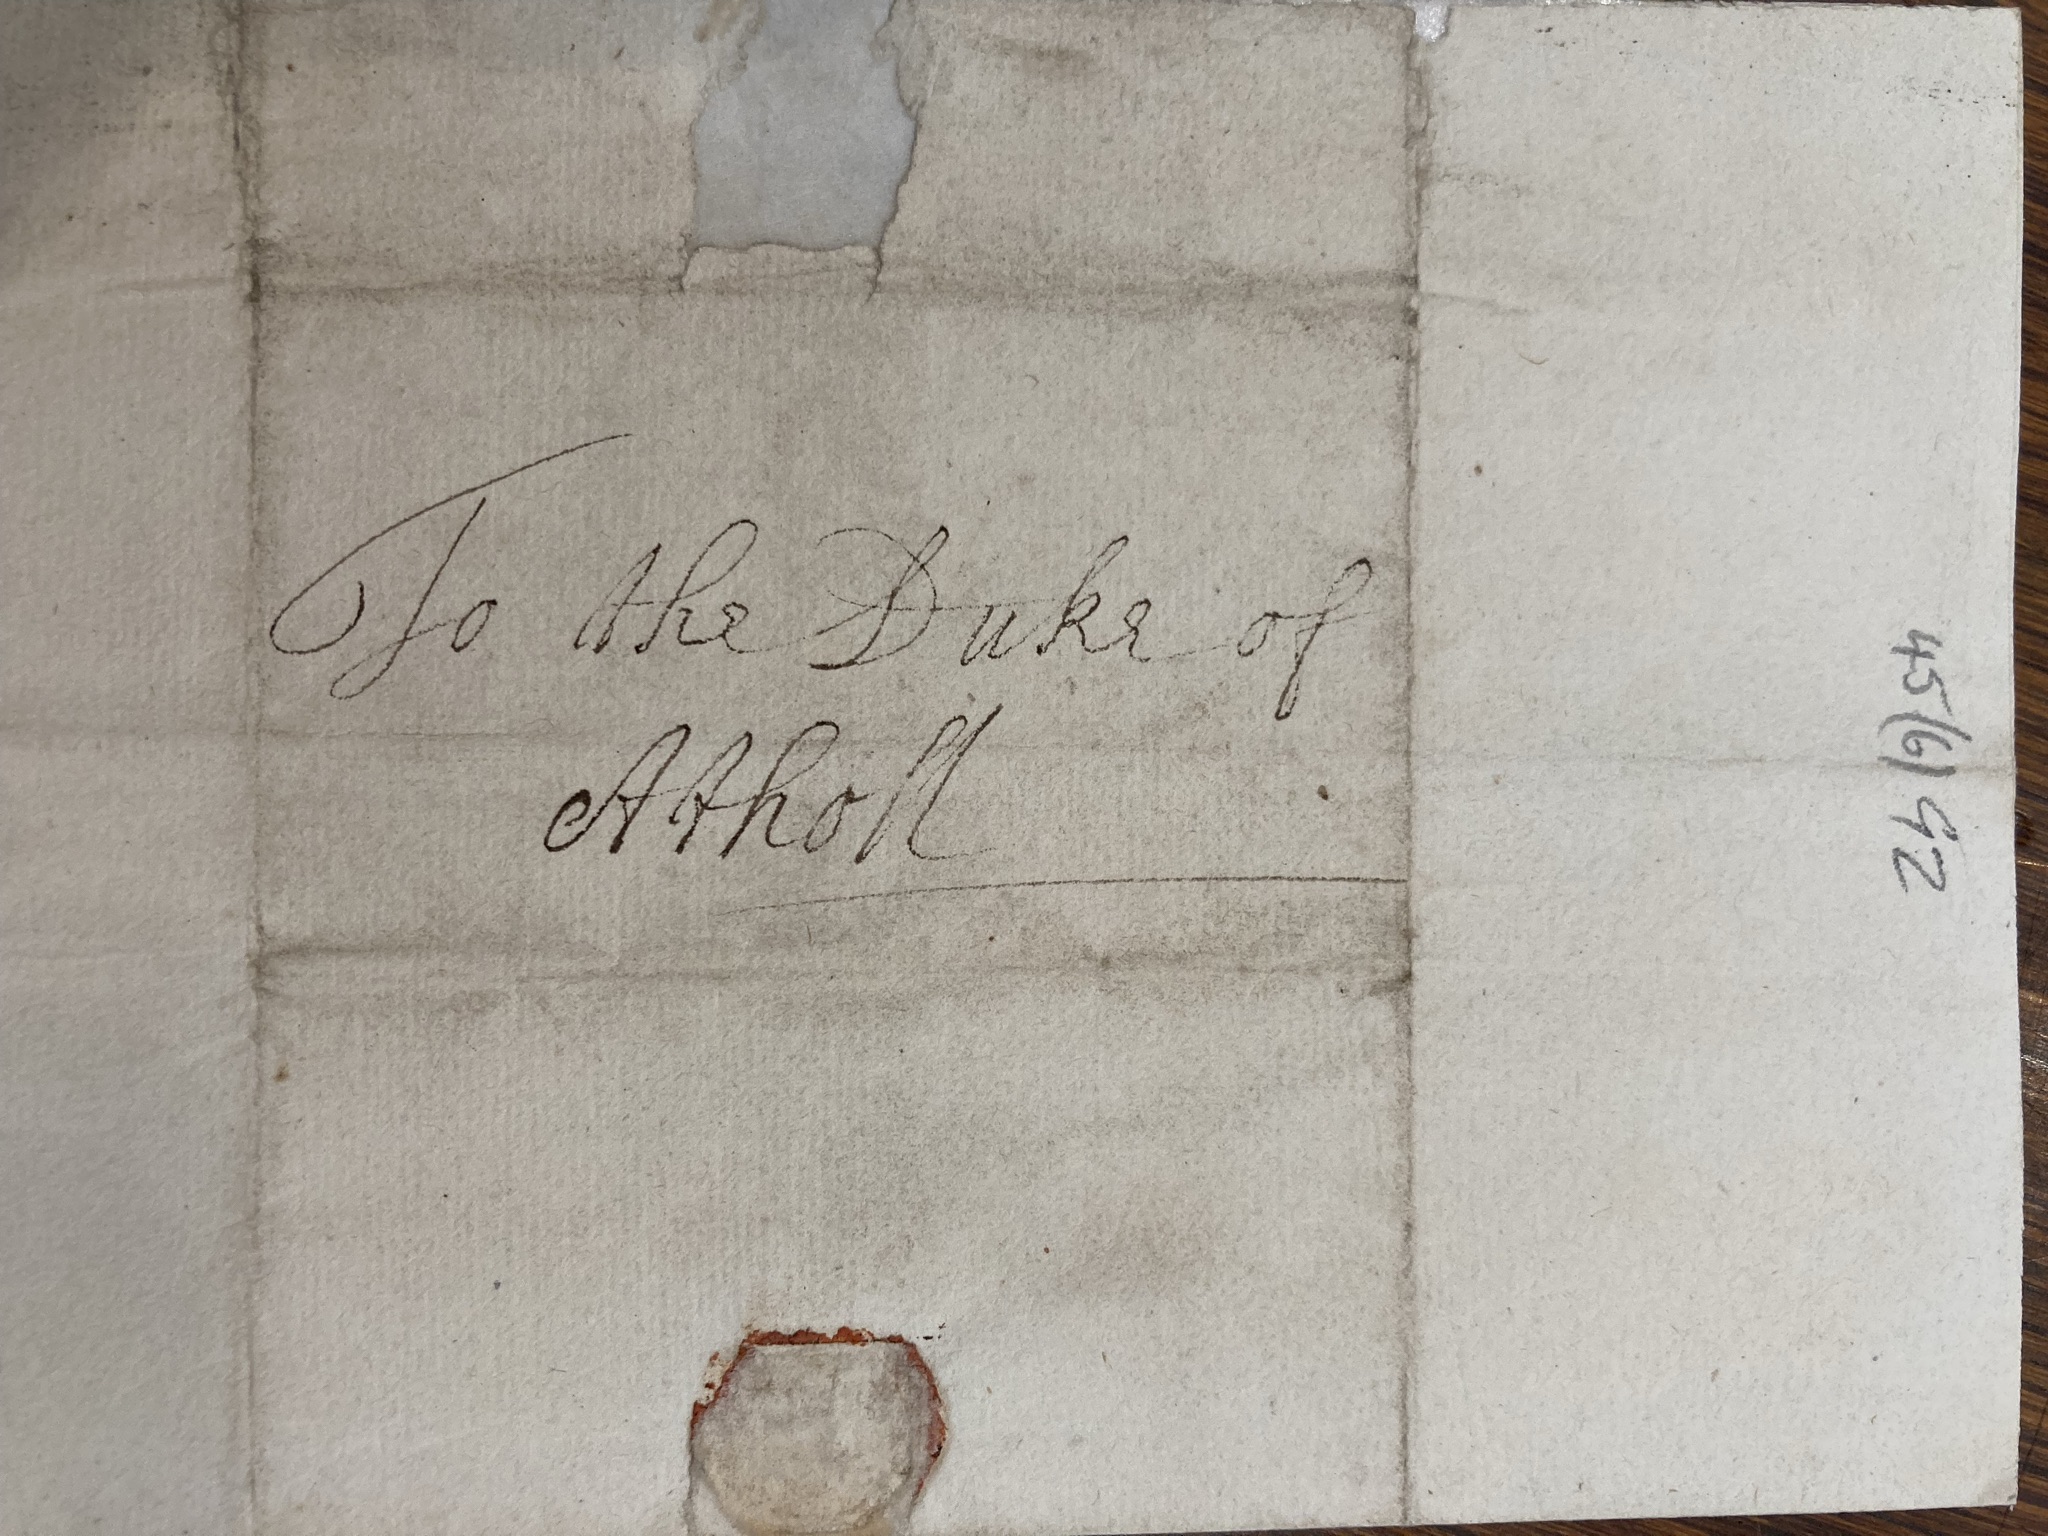 To the Duke of
Atholl
45(6)92